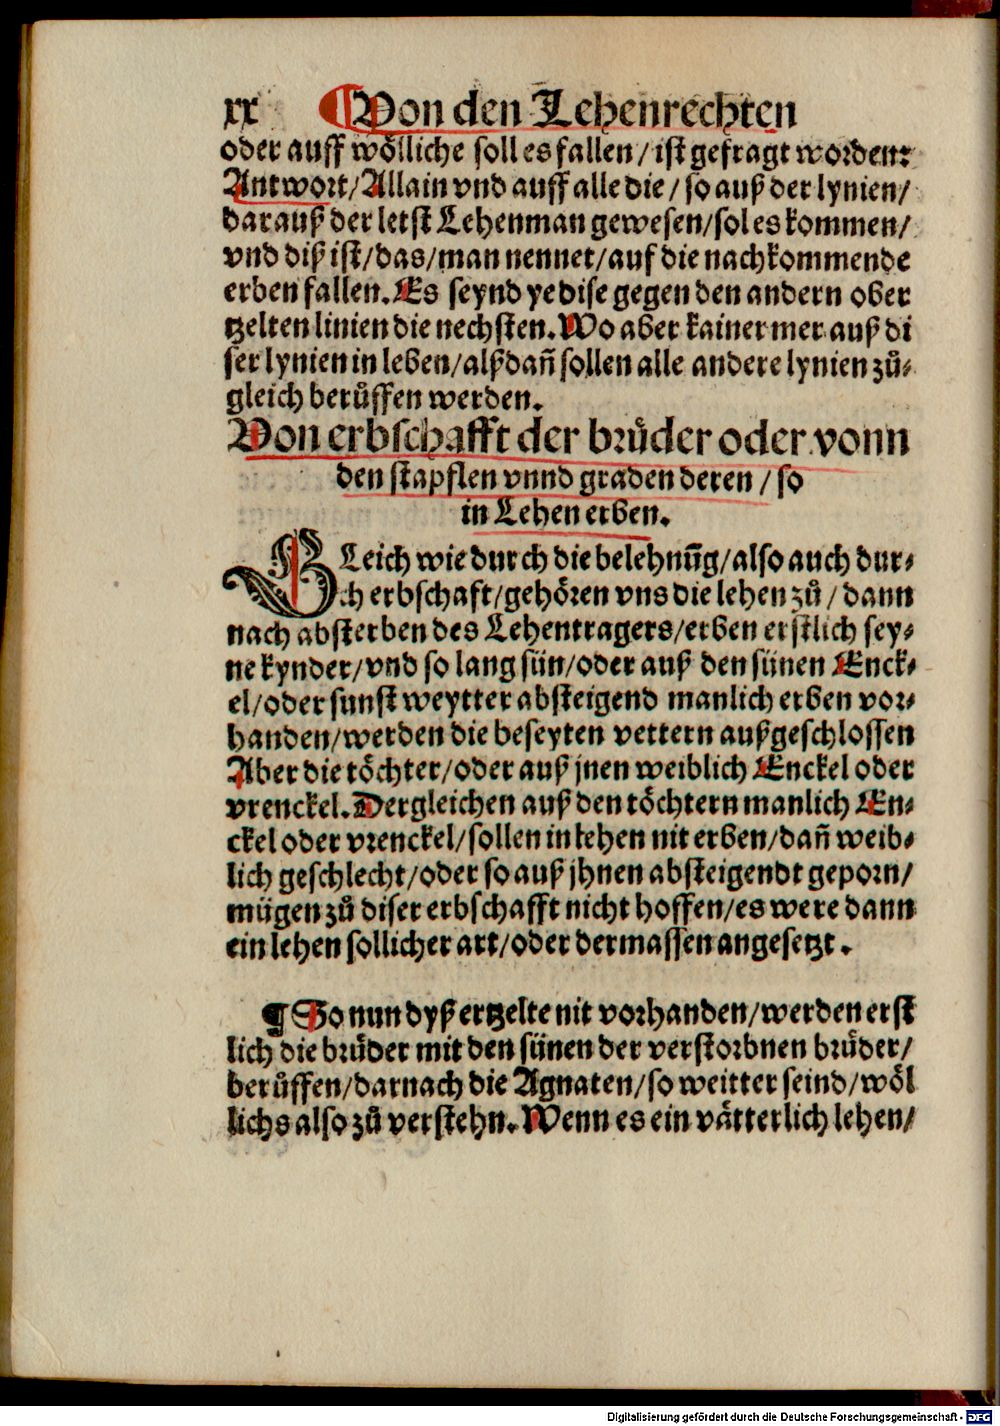 xx ¶Von den Lehenrechten
oder auff wölliche soll es fallen / ist gefragt worden:
Antwort / Allain vnd auff alle die / so auß der lynien /
darauß der letst Lehenman gewesen / sol es kommen /
vnd diß ist / das / man nennet / auf die nachkommende
erben fallen. Es seynd ye dise gegen den andern ober
tzelten linien die nechsten. Wo aber kainer mer auß di
ser lynien in leben / alßdañ sollen alle andere lynien zů⸗
gleich berůffen werden.
Von erbschafft der brůder oder vonn
den stapflen vnnd graden deren / so
in Lehen erben.
GLeich wie durch die belehnūg / also auch dur⸗
ch erbschaft / gehören vns die lehen zů / dann
nach absterben des Lehentragers / erben erstlich sey⸗
ne kynder / vnd so lang sün / oder auß den sünen Enck⸗
el / oder sunst weytter absteigend manlich erben vor⸗
handen / werden die beseyten vettern außgeschlossen
Aber die töchter / oder auß jnen weiblich Enckel oder
vrenckel. Dergleichen auß den töchtern manlich En⸗
ckel oder vrenckel / sollen in lehen nit erben / dañ weib⸗
lich geschlecht / oder so auß jhnen absteigendt geporn /
mügen zů diser erbschafft nicht hoffen / es were dann
ein lehen sollicher art / oder dermassen angesetzt.
¶ So nun dyß ertzelte nit vorhanden / werden erst
lich die brůder mit den sünen der verstorbnen brůder /
berůffen / darnach die Agnaten / so weitter seind / wöl
lichs also zů verstehn. Wenn es ein vätterlich lehen /
Digitalisierung gefördert durch die Deutsche Forschungsgemeinschaft - DFG